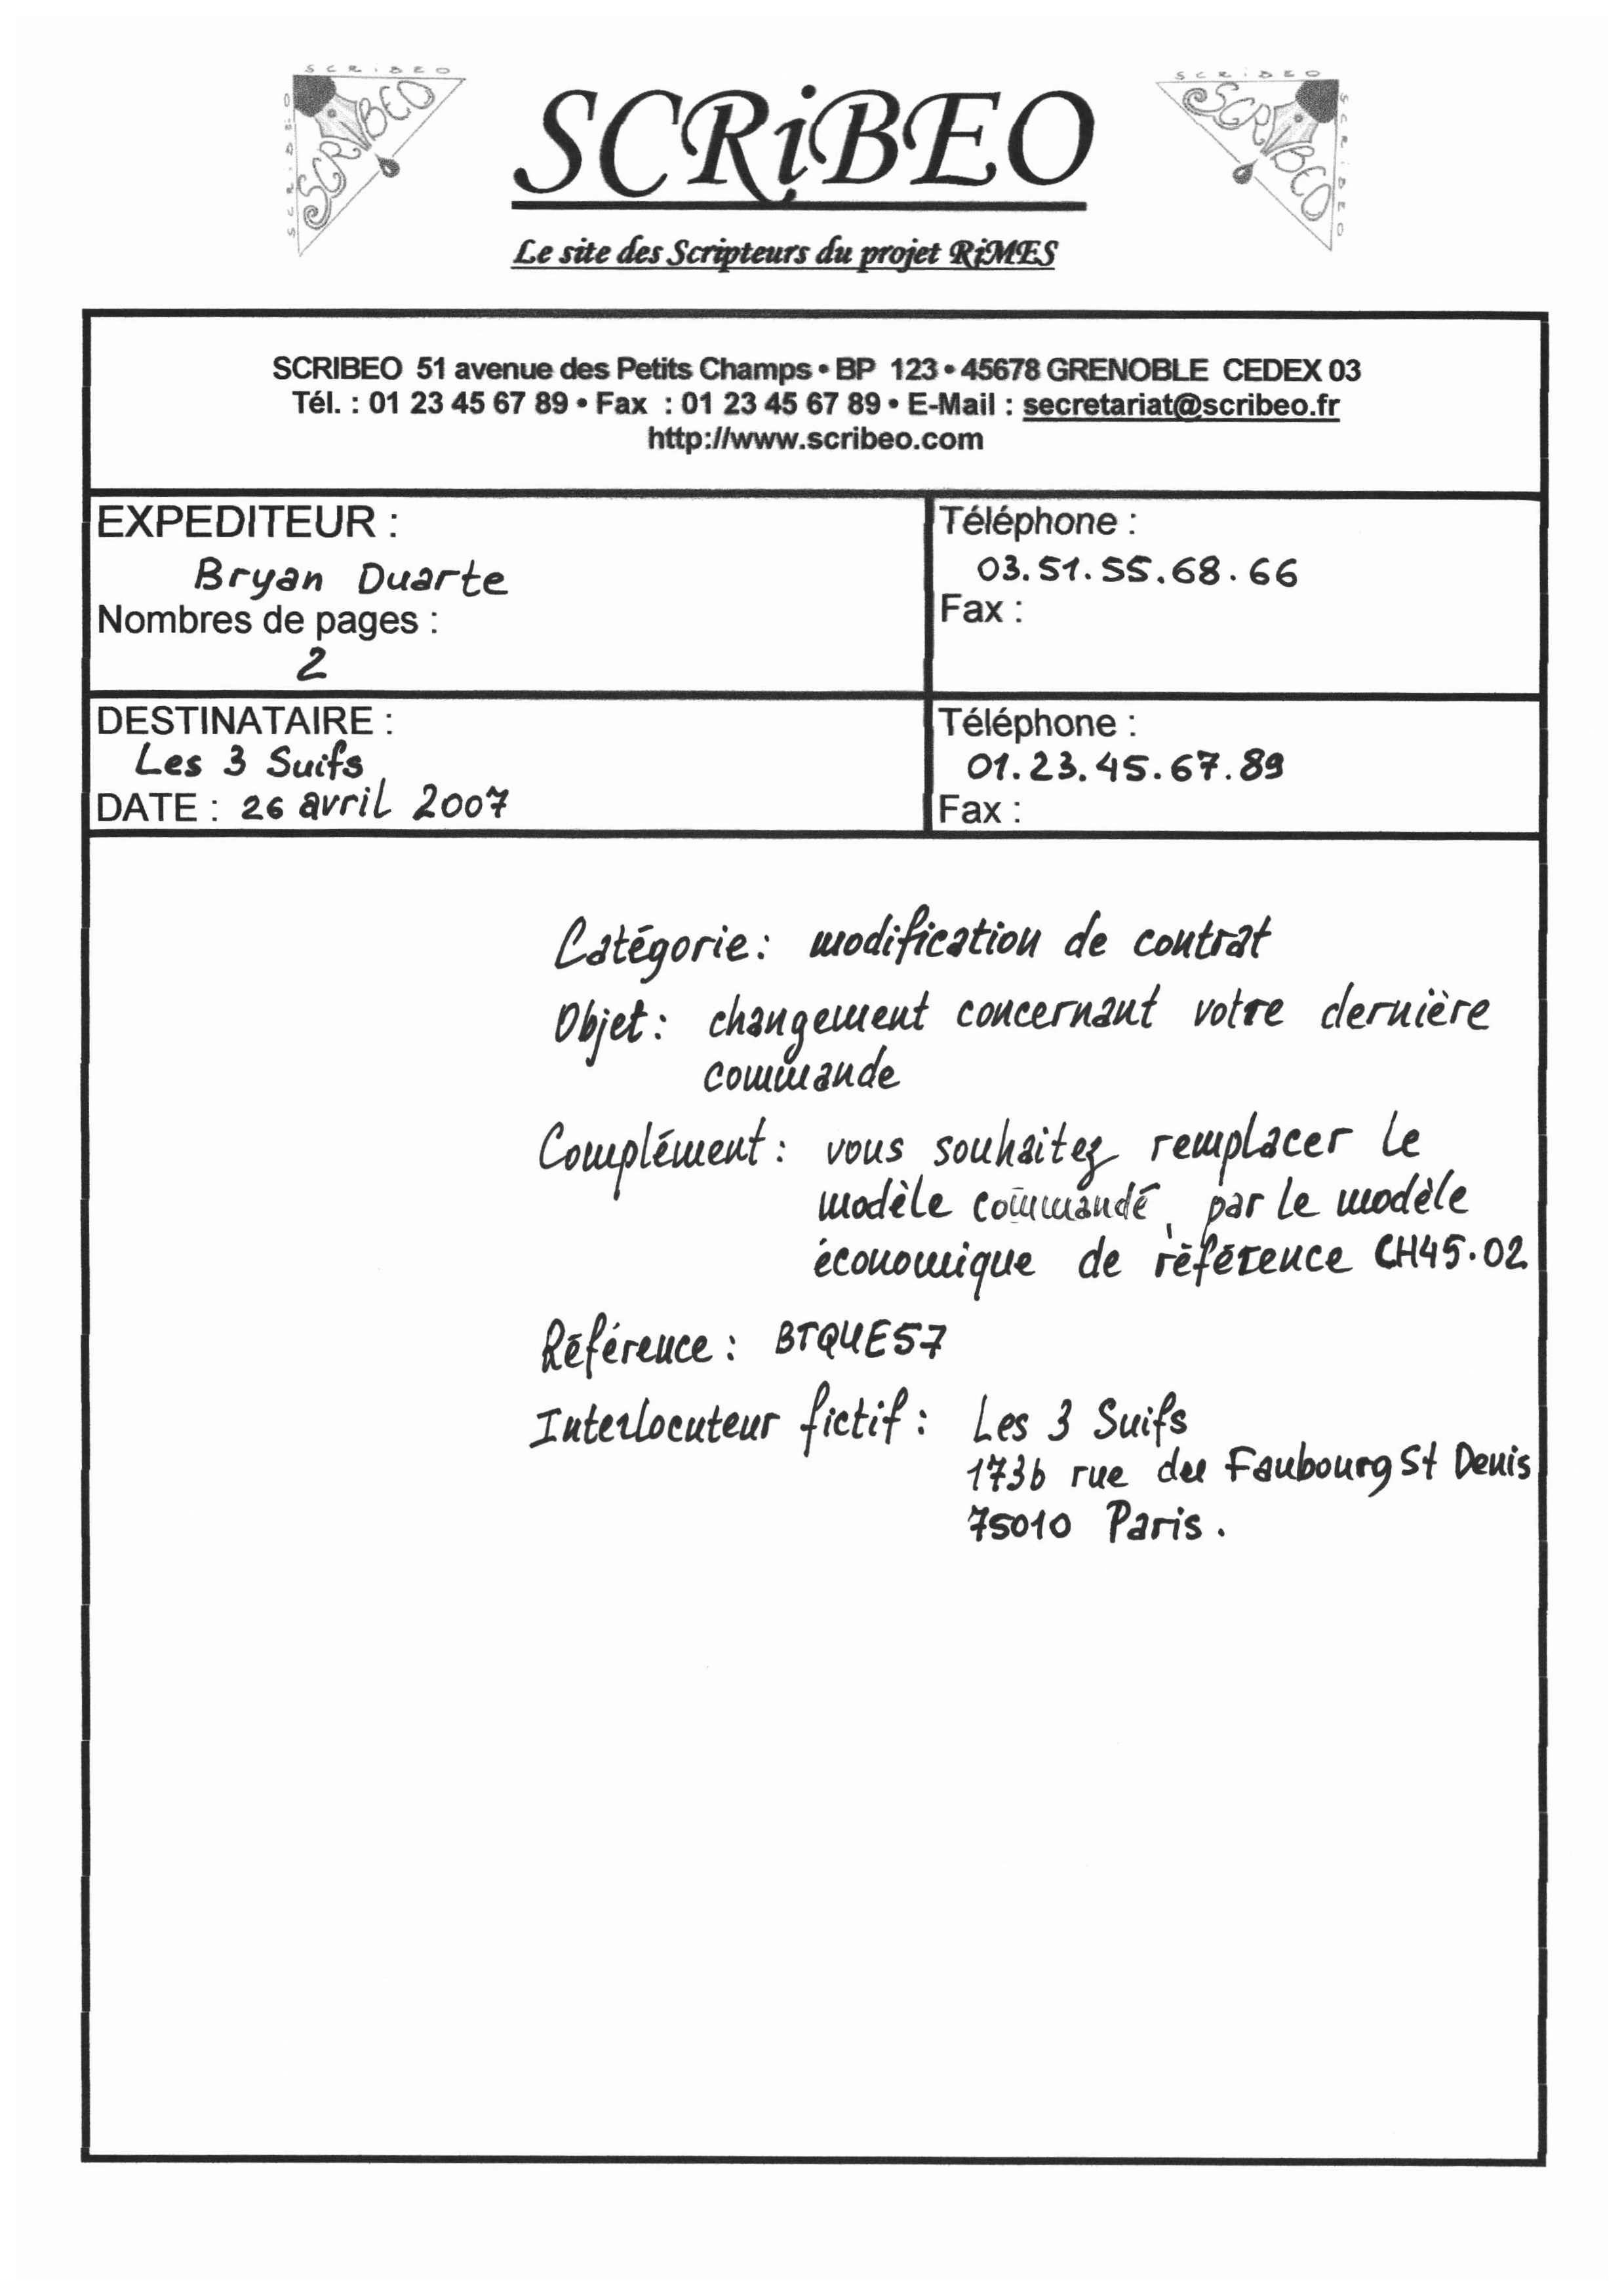 SCRiBEO
Le site des Scripteurs du projet RiMES
SCRIBEO 51 avenue des Petits Champs • BP 123 • 45678 GRENOBLE CEDEX 03
Tél. : 01 23 45 67 89 • Fax : 01 23 45 67 89 • E-Mail : secretariat@scribeo.fr
http://www.scribeo.com
EXPEDITEUR :
Bryan Duarte
Nombres de pages :
2
Téléphone :
03.51.55.68.66
Fax :
DESTINATAIRE :
Les 3 Suifs
DATE : 26 avril 2007
Téléphone :
01.23.45.67.89
Fax :
Catégorie : modification de contrat
Objet : changement concernant votre dernière
commande
Complément : vous souhaitez remplacer le
modèle commandé, par le modèle
économique de référence CH45.02
Référence : BTQUE57
Interlocuteur fictif : Les 3 Suifs
173b rue du Faubourg St Denis
75010 Paris.